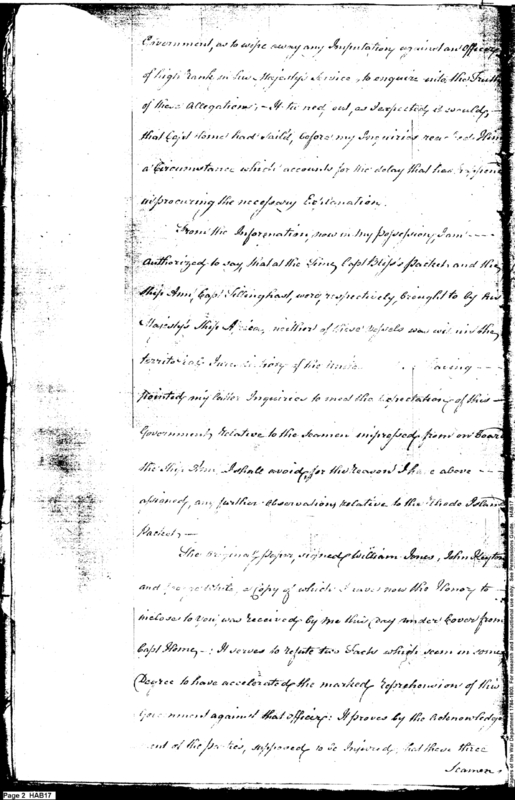 Government, as to wipe away any Imputation against an Officer
of high Rank in His Majesty's Service, to enquire into the Truth
of these Allegations,- It turned out, as I expected it would,
that Capt Home had sail'd, before my Inquiries reached Him
a Circumstance which accounts for the delay that has
in procuring the necessary Explanation.
From the Information, now in my possession, I am
authorized to say, that at the Time, Capt Bliss's Packet and the
Ship Ann, Capt Tillinghast, were, respectively, brought to by His
Majesty's Ship Africa, neither of these Vessels was within the
territorial Jurisdiction of the having
pointed my latter Inquiries to meet the expectations of this
Government, relative to the Seamen impressed from on board
the Ship Ann, I shall avoid, for the reason I have above
assigned, any further observations relative to the Rhode Island
Packet,-
The original paper, signed William Jones, John
and White, a Copy of which I have now the Honor to
inclose to you, was received by me this day under Cover from
Capt Home,-: It serves to refute two Facts which seem in some
Degree to have accelerated the marked reprehension of this
Government against that officer: It proves by the Acknowledge-
ment of the parties, supposed to be Injured, that these three
Seamen
Page 2 HAB17